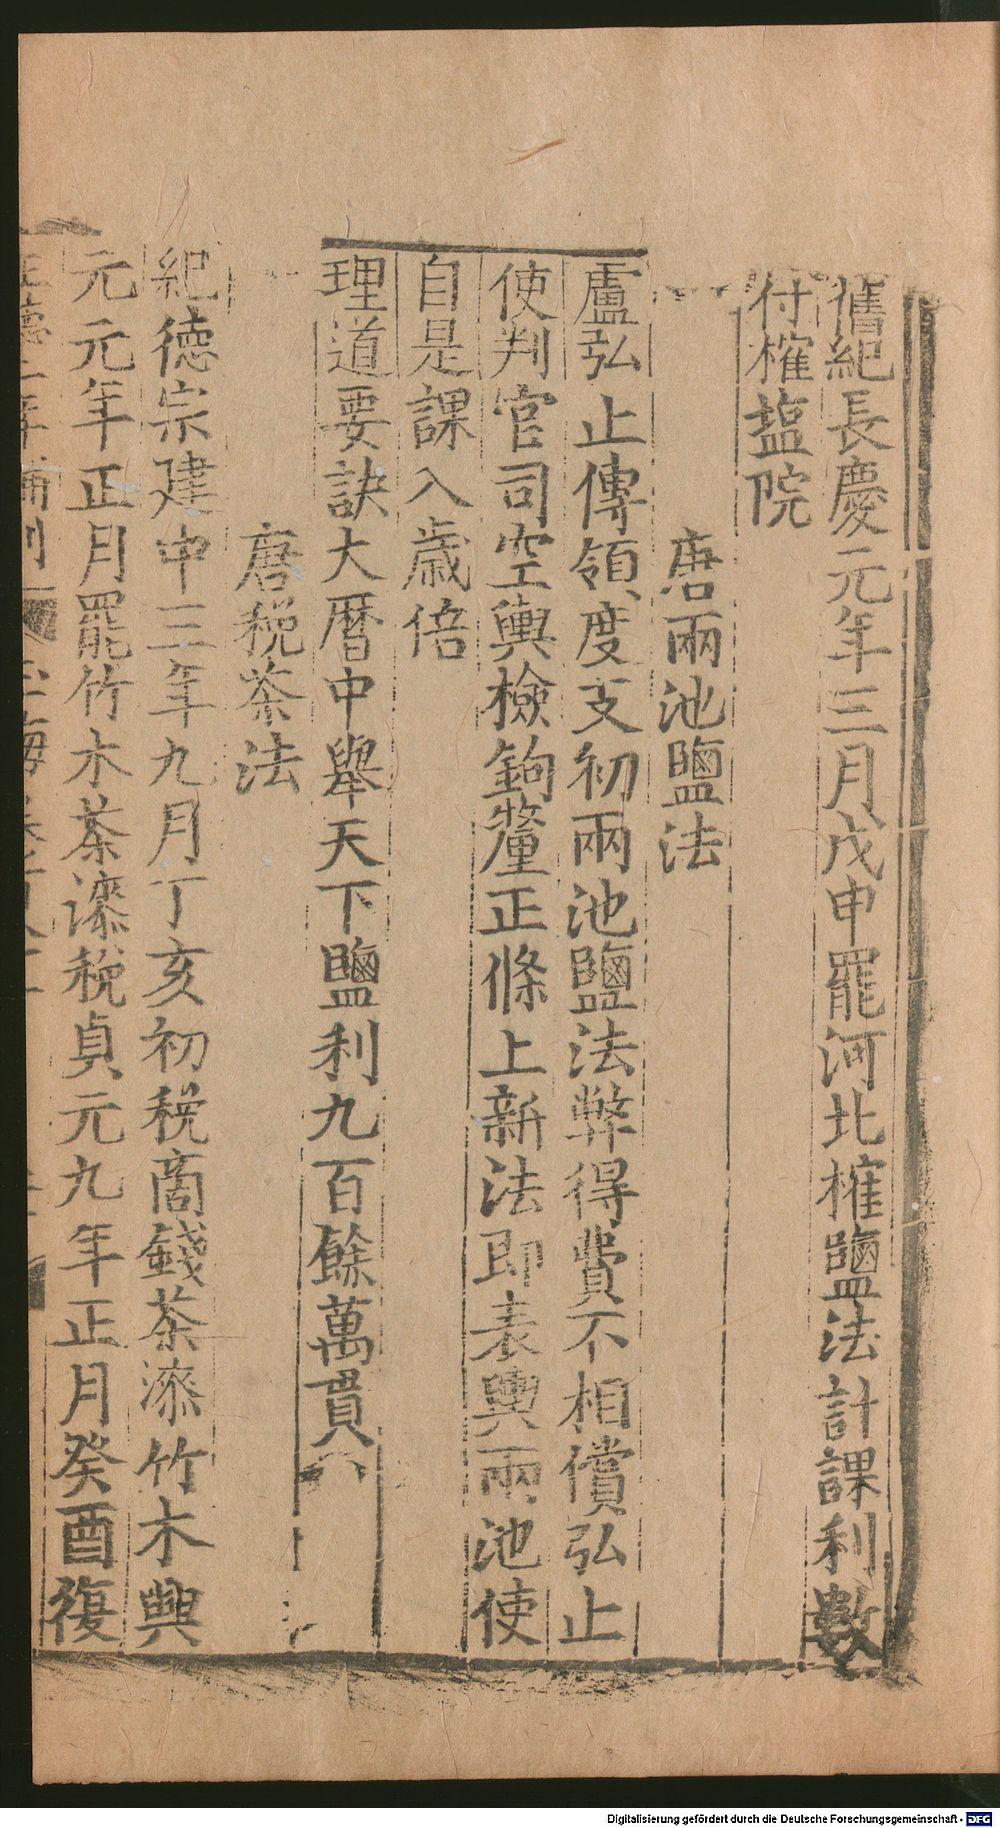 舊紀長慶元年三月戊申罷河北榷鹽法計課利數
付榷塩院
唐兩池鹽法
盧弘止傳領度支初兩池鹽法弊得費不相償弘止
使判官司空輿檢鉤釐正條上新法即表輿兩池使
自是課入歲倍
理道要訣大曆中舉天下鹽利九百餘萬貫
唐稅茶法
紀德宗建中三年九月丁亥初稅商錢茶漆竹木興
元元年正月罷竹木茶漆稅貞元九年正月癸酉復
Digitalisierung gefördert durch die Deutsche Forschungsgemeinschaft - DFG